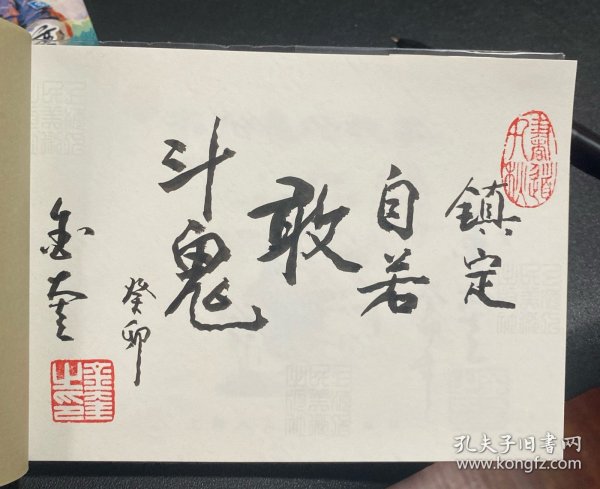 鎮定
自若
敢
斗鬼
癸卯
孔夫子旧书网
www.kongfz.com